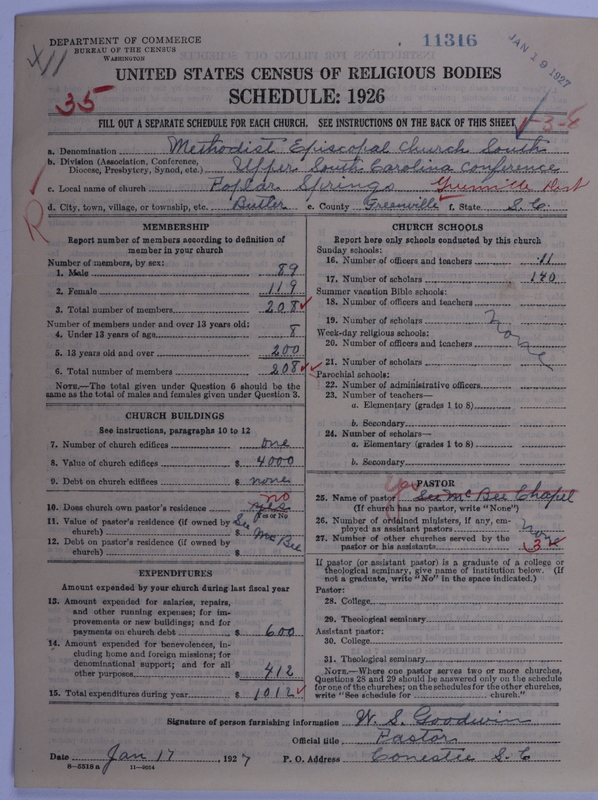 DEPARTMENT OF COMMERCE
BUREAU OF THE CENSUS
WASHINGTON
11316
JAN 19 1927
X11
35
UNITED STATES CENSUS OF RELIGIOUS BODIES
SCHEDULE: 1926
FILL OUT A SEPARATE SCHEDULE FOR EACH CHURCH. SEE INSTRUCTIONS ON THE BACK OF THIS SHEET
a. Denomination Methodist Episcopal Church South
b. Division (Association, Conference, Diocese, Presbytery, Synod, etc.) Upper South Carolina Conference
c. Local name of church Poplar Springs Greenville Dist
d. City, town, village, or township, etc. Butler e. County Greenville f. State S. C.
R
MEMBERSHIP
Report number of members according to definition of member in your church
Number of members, by sex:
1. Male 89
2. Female 119
3. Total number of members 208
Number of members under and over 13 years old:
4. Under 13 years of age 8
5. 13 years old and over 200
6. Total number of members 208
NOTE.—The total given under Question 6 should be the same as the total of males and females given under Question 3.
CHURCH BUILDINGS
See instructions, paragraphs 10 to 12
7. Number of church edifices one
8. Value of church edifices $ 4000
9. Debt on church edifices $ none
no
10. Does church own pastor's residence yes
Yes or No
11. Value of pastor's residence (if owned by church) $ See
12. Debt on pastor's residence (if owned by church) $ McBee
EXPENDITURES
Amount expended by your church during last fiscal year
13. Amount expended for salaries, repairs, and other running expenses; for improvements or new buildings; and for payments on church debt $ 600
14. Amount expended for benevolences, including home and foreign missions; for denominational support; and for all other purposes $ 412
15. Total expenditures during year $ 1012
CHURCH SCHOOLS
Report here only schools conducted by this church
Sunday schools:
16. Number of officers and teachers 11
17. Number of scholars 140
Summer vacation Bible schools:
18. Number of officers and teachers
19. Number of scholars none
Week-day religious schools:
20. Number of officers and teachers
21. Number of scholars
Parochial schools:
22. Number of administrative officers
23. Number of teachers—
a. Elementary (grades 1 to 8)
b. Secondary
24. Number of scholars—
a. Elementary (grades 1 to 8)
b. Secondary
PASTOR
yes
25. Name of pastor See McBee Chapel
(If church has no pastor, write "None")
26. Number of ordained ministers, if any, employed as assistant pastors none
27. Number of other churches served by the pastor or his assistants 3
If pastor (or assistant pastor) is a graduate of a college or theological seminary, give name of institution below. (If not a graduate, write "No" in the space indicated.)
Pastor:
28. College
29. Theological seminary
Assistant pastor:
30. College
31. Theological seminary
NOTE.—Where one pastor serves two or more churches, Questions 28 and 29 should be answered only on the schedule for one of the churches; on the schedules for the other churches, write "See schedule for church."
Signature of person furnishing information W. S. Goodwin
Official title Pastor
Date Jan 17 1927 P. O. Address Conestee S. C.
8—5518a 11—9054